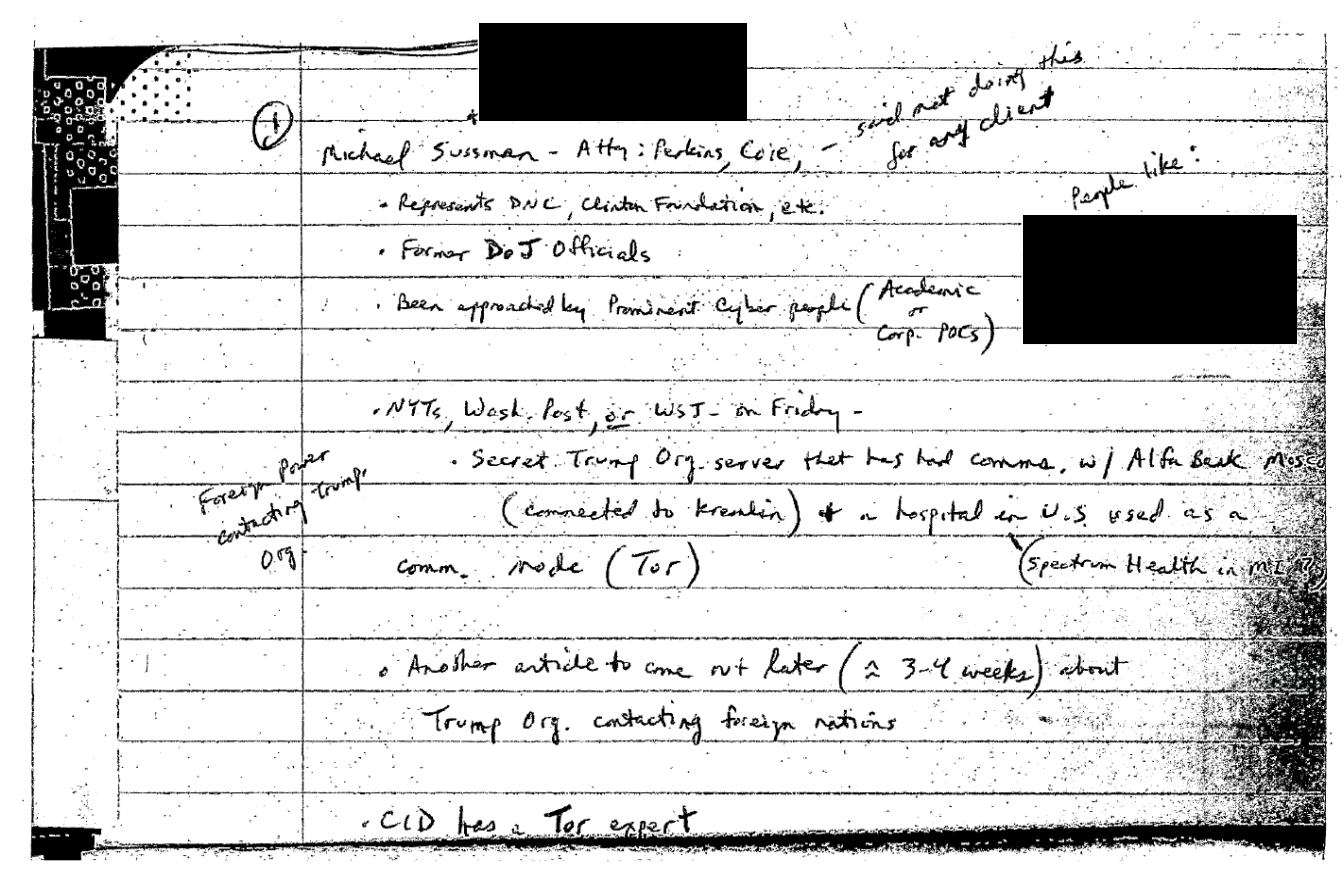 ① Michael Sussman - Atty: Perkins, Coie, - said not doing this
for any client
People like:
• Represents DNC, Clinton Foundation, etc.
• Former DoJ Officials
• Been approached by Prominent Cyber people (Academic
or
Corp. POCs)
• NYTs, Wash. Post, or WSJ - on Friday -
• Secret Trump Org. server that has had comms. w/ Alfa Bank Mosco
(connected to Kremlin) + a hospital in U.S used as a
comm. node (Tor)
(Spectrum Health in MI?)
Foreign Power
contacting Trump.
Org.
• Another article to come out later (≈ 3-4 weeks) about
Trump Org. contacting foreign nations
• CID has a Tor expert